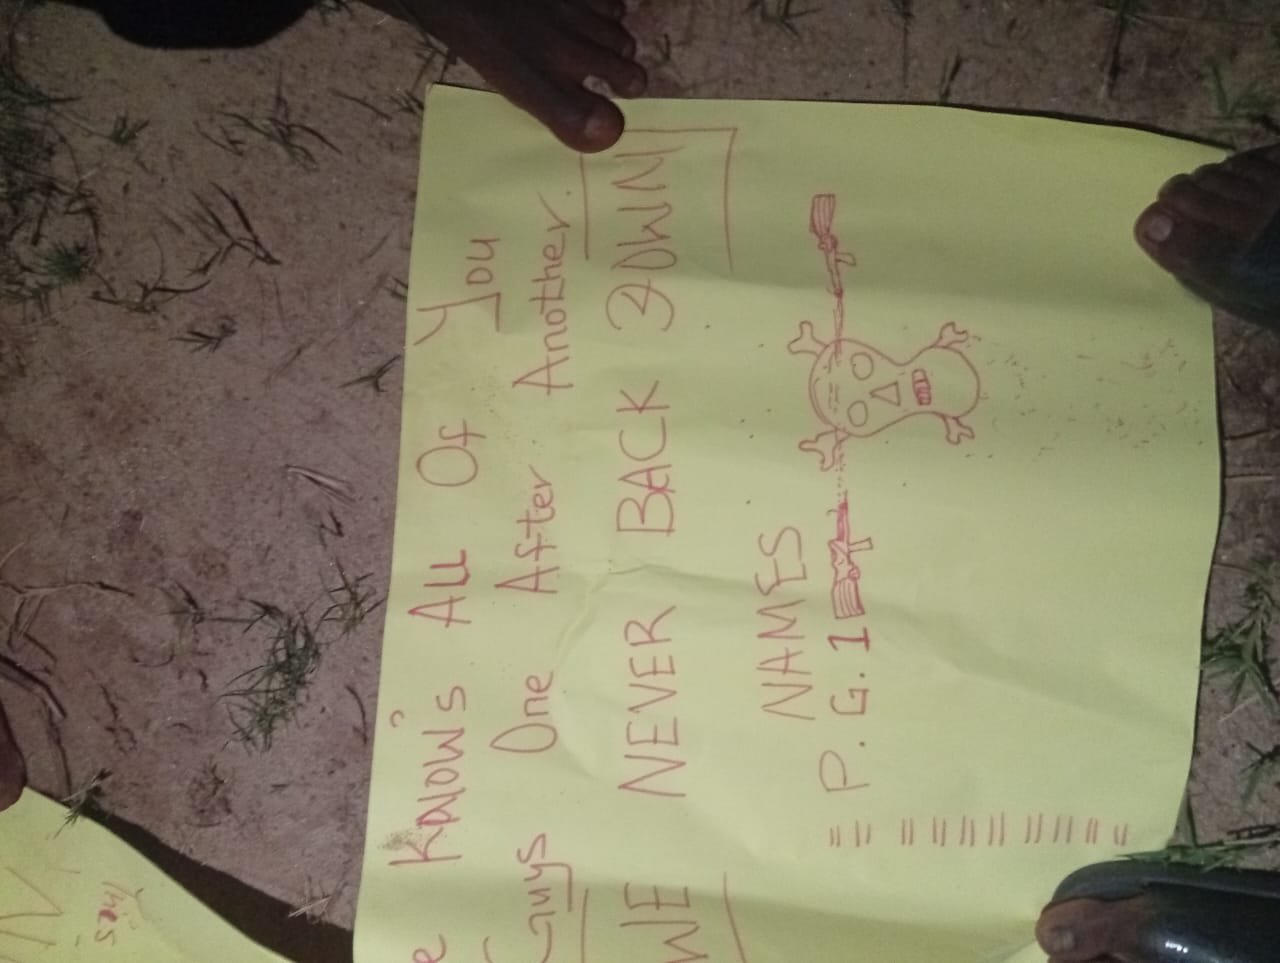 Know's All Of You
Guys One After Another.
WE NEVER BACK DOWN
NAMES
P. G. 1